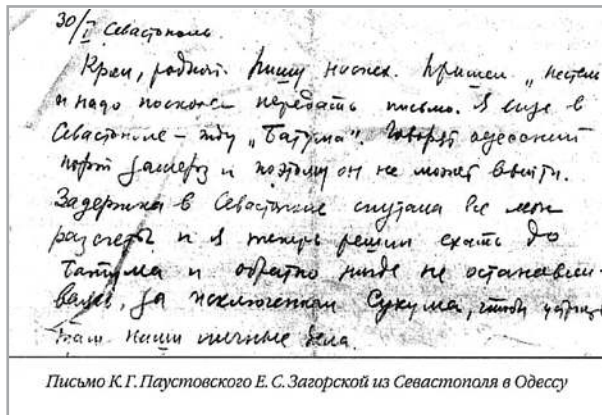 30/I Севастополь
родной. Пишу наспех. Пришел „Пестель
и надо поскорее передать письмо. Я еще в
Севастополе – жду „Батума". Говорят одесский
порт замерз и поэтому он не может выйти.
Задержка в Севастополе спутала все мои
разсчеты и я теперь решил ехать до
Батума и обратно нигде не останавли-
ваясь, за исключением Сухума, чтобы
там наши личные дела.
Письмо К. Г. Паустовского Е. С. Загорской из Севастополя в Одессу